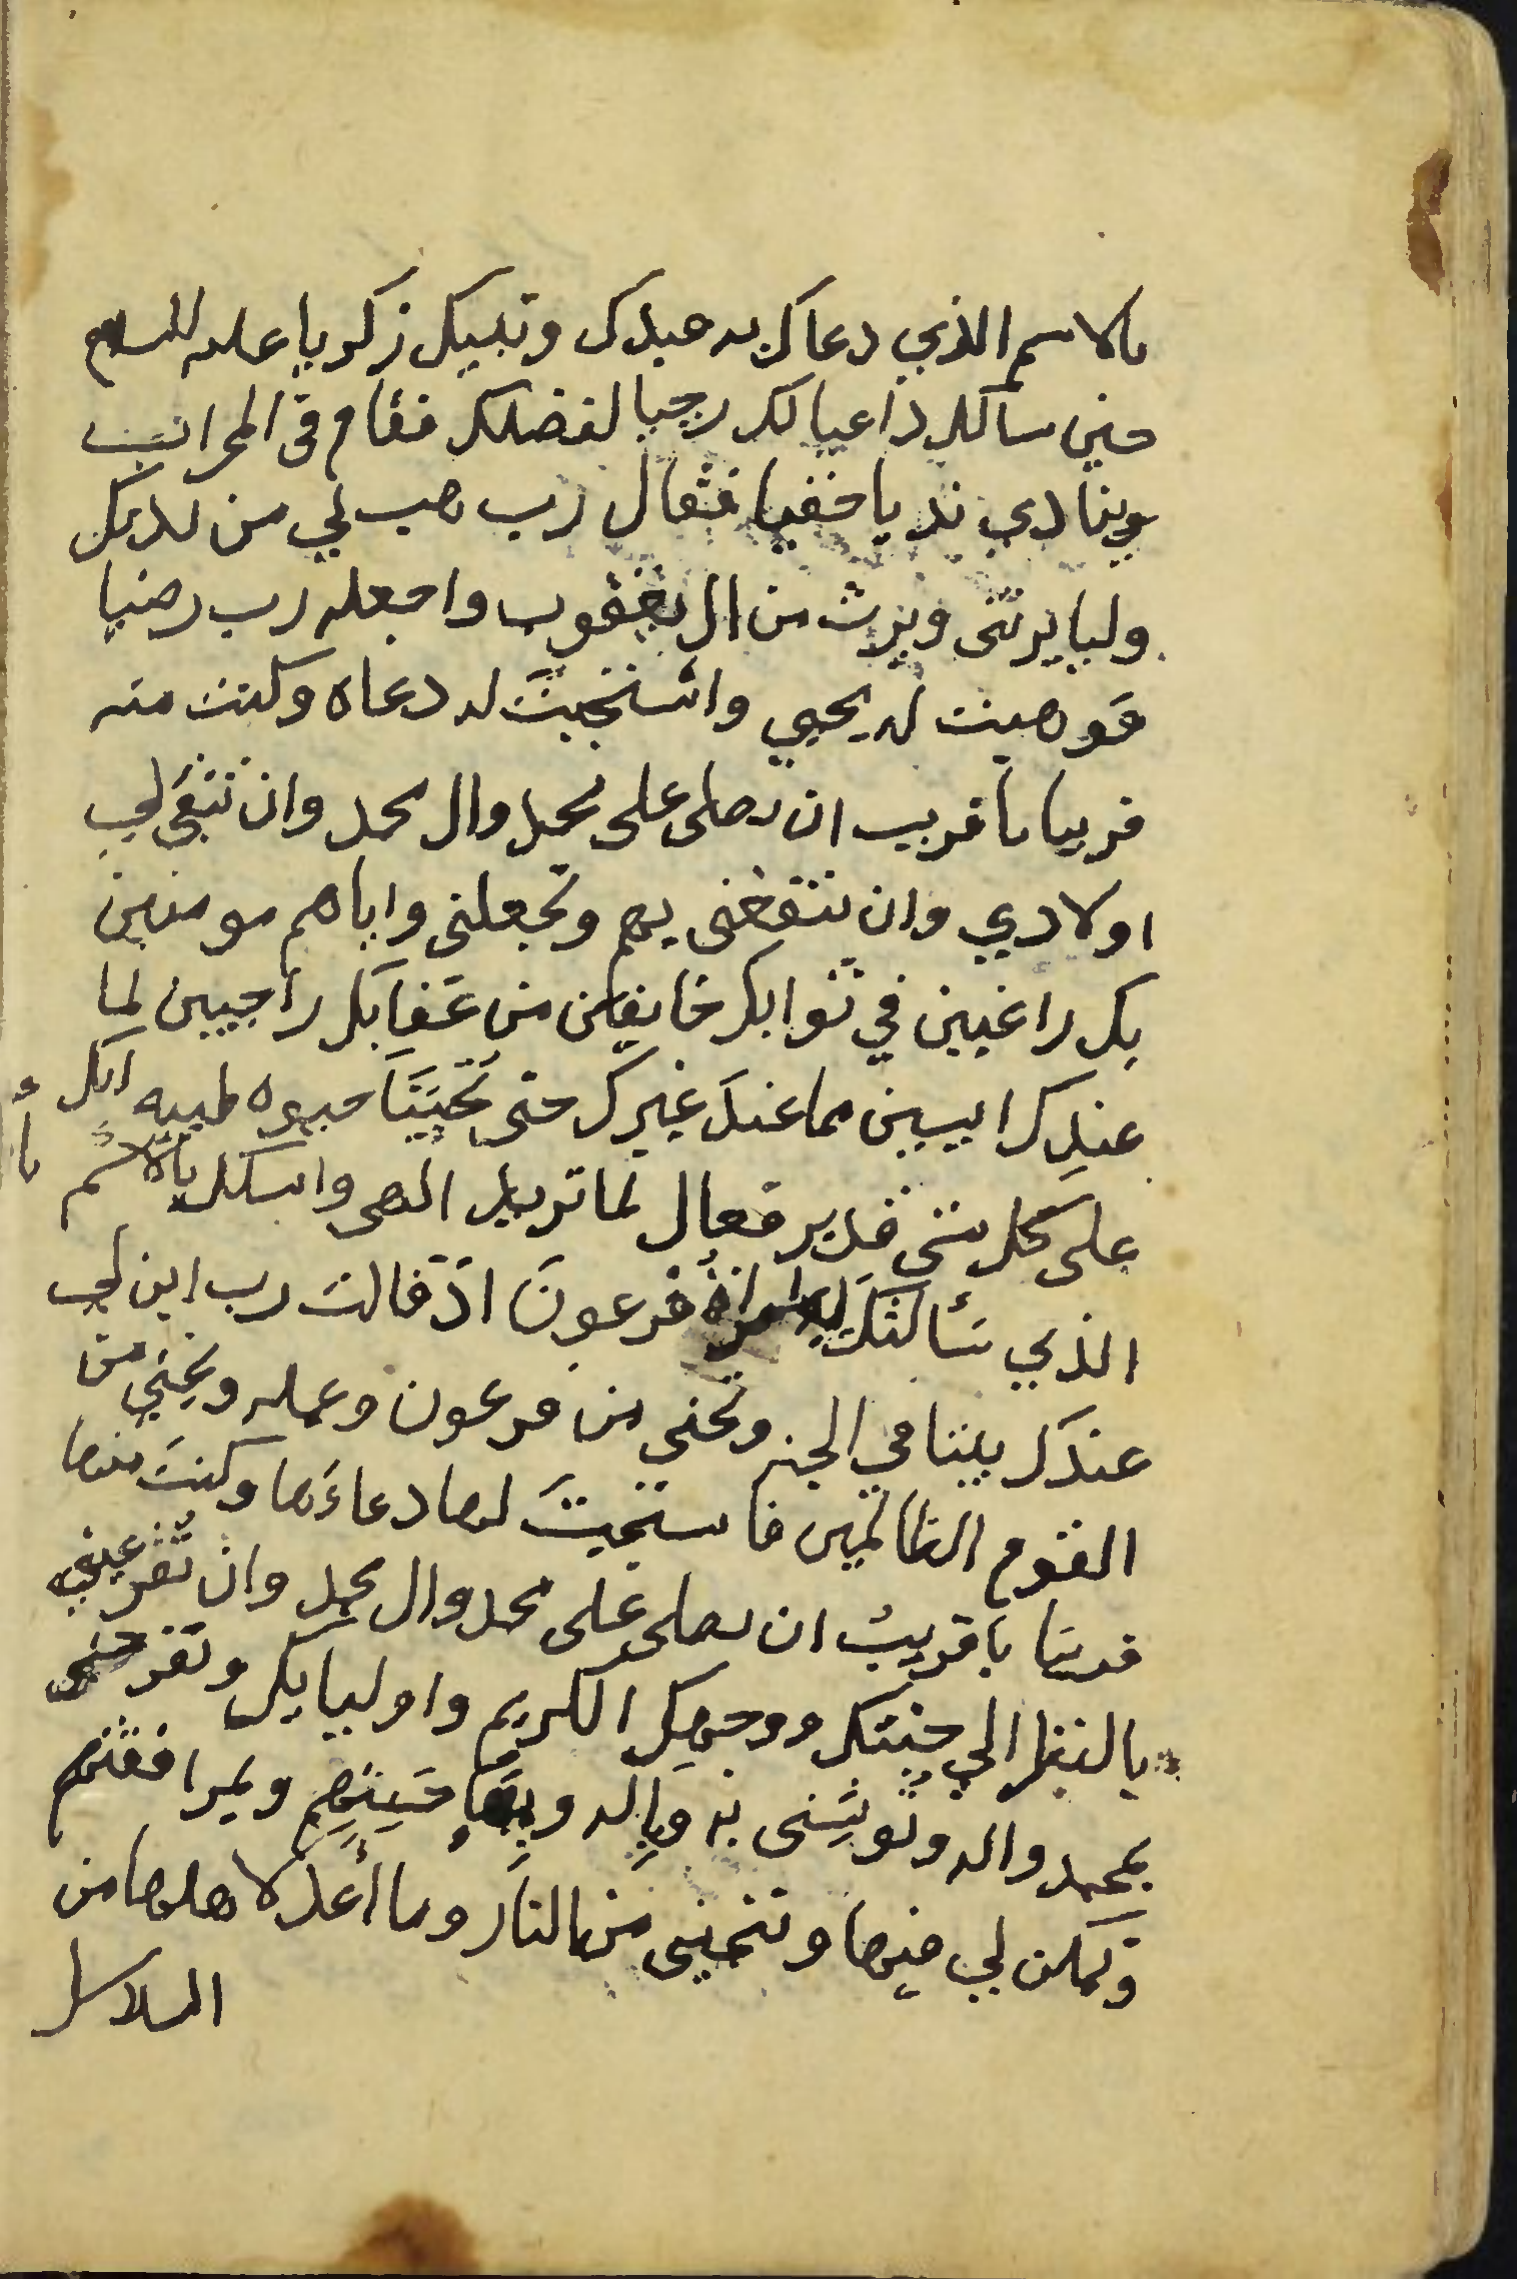 بالاسم الذي دعاك به عبدك ونبيك زكريا عليه السلام
حين سالك داعيا لك رجيا لفضلك فقام في المحراب
وينادي نديا خفيا فقال رب هب لي من لدنك
وليا يرثني ويرث من ال يعقوب واجعله رب رضيا
فوهبت له يحيي واستجبت له دعاه وكنت منه
قريبا يا قريب ان تصلي على محمد وال محمد وان تبقي لي
اولادي وان تنفعني بهم وتجعلني واياهم مومنين
بك راغبين في ثوابك خايفين من عقابك راجيين لما
عندك ايسين مما عند غيرك حتى تحيينا حيوه طيبه انك
على كل شي قدير فعال لما تريد الهي واسئلك بالاسم
الذي سألتك به امراة فرعون اذ قالت رب ابن لي
عندك بيتا في الجنه ونجني من فرعون وعمله ونجني من
القوم الظالمين فاستجبت لها دعاءها وكنت منها
قريبا يا قريب ان تصلي على محمد وال محمد وان تقر عيني
بالنظر الي جنتك ووجهك الكريم واوليايك وتفرحني
بمحمد واله وتونسني به وباله و حبيتهم وبمرافقتهم
وتمكن لي فيها وتنجيني من النار وما أعد لاهلها من
السلاسل